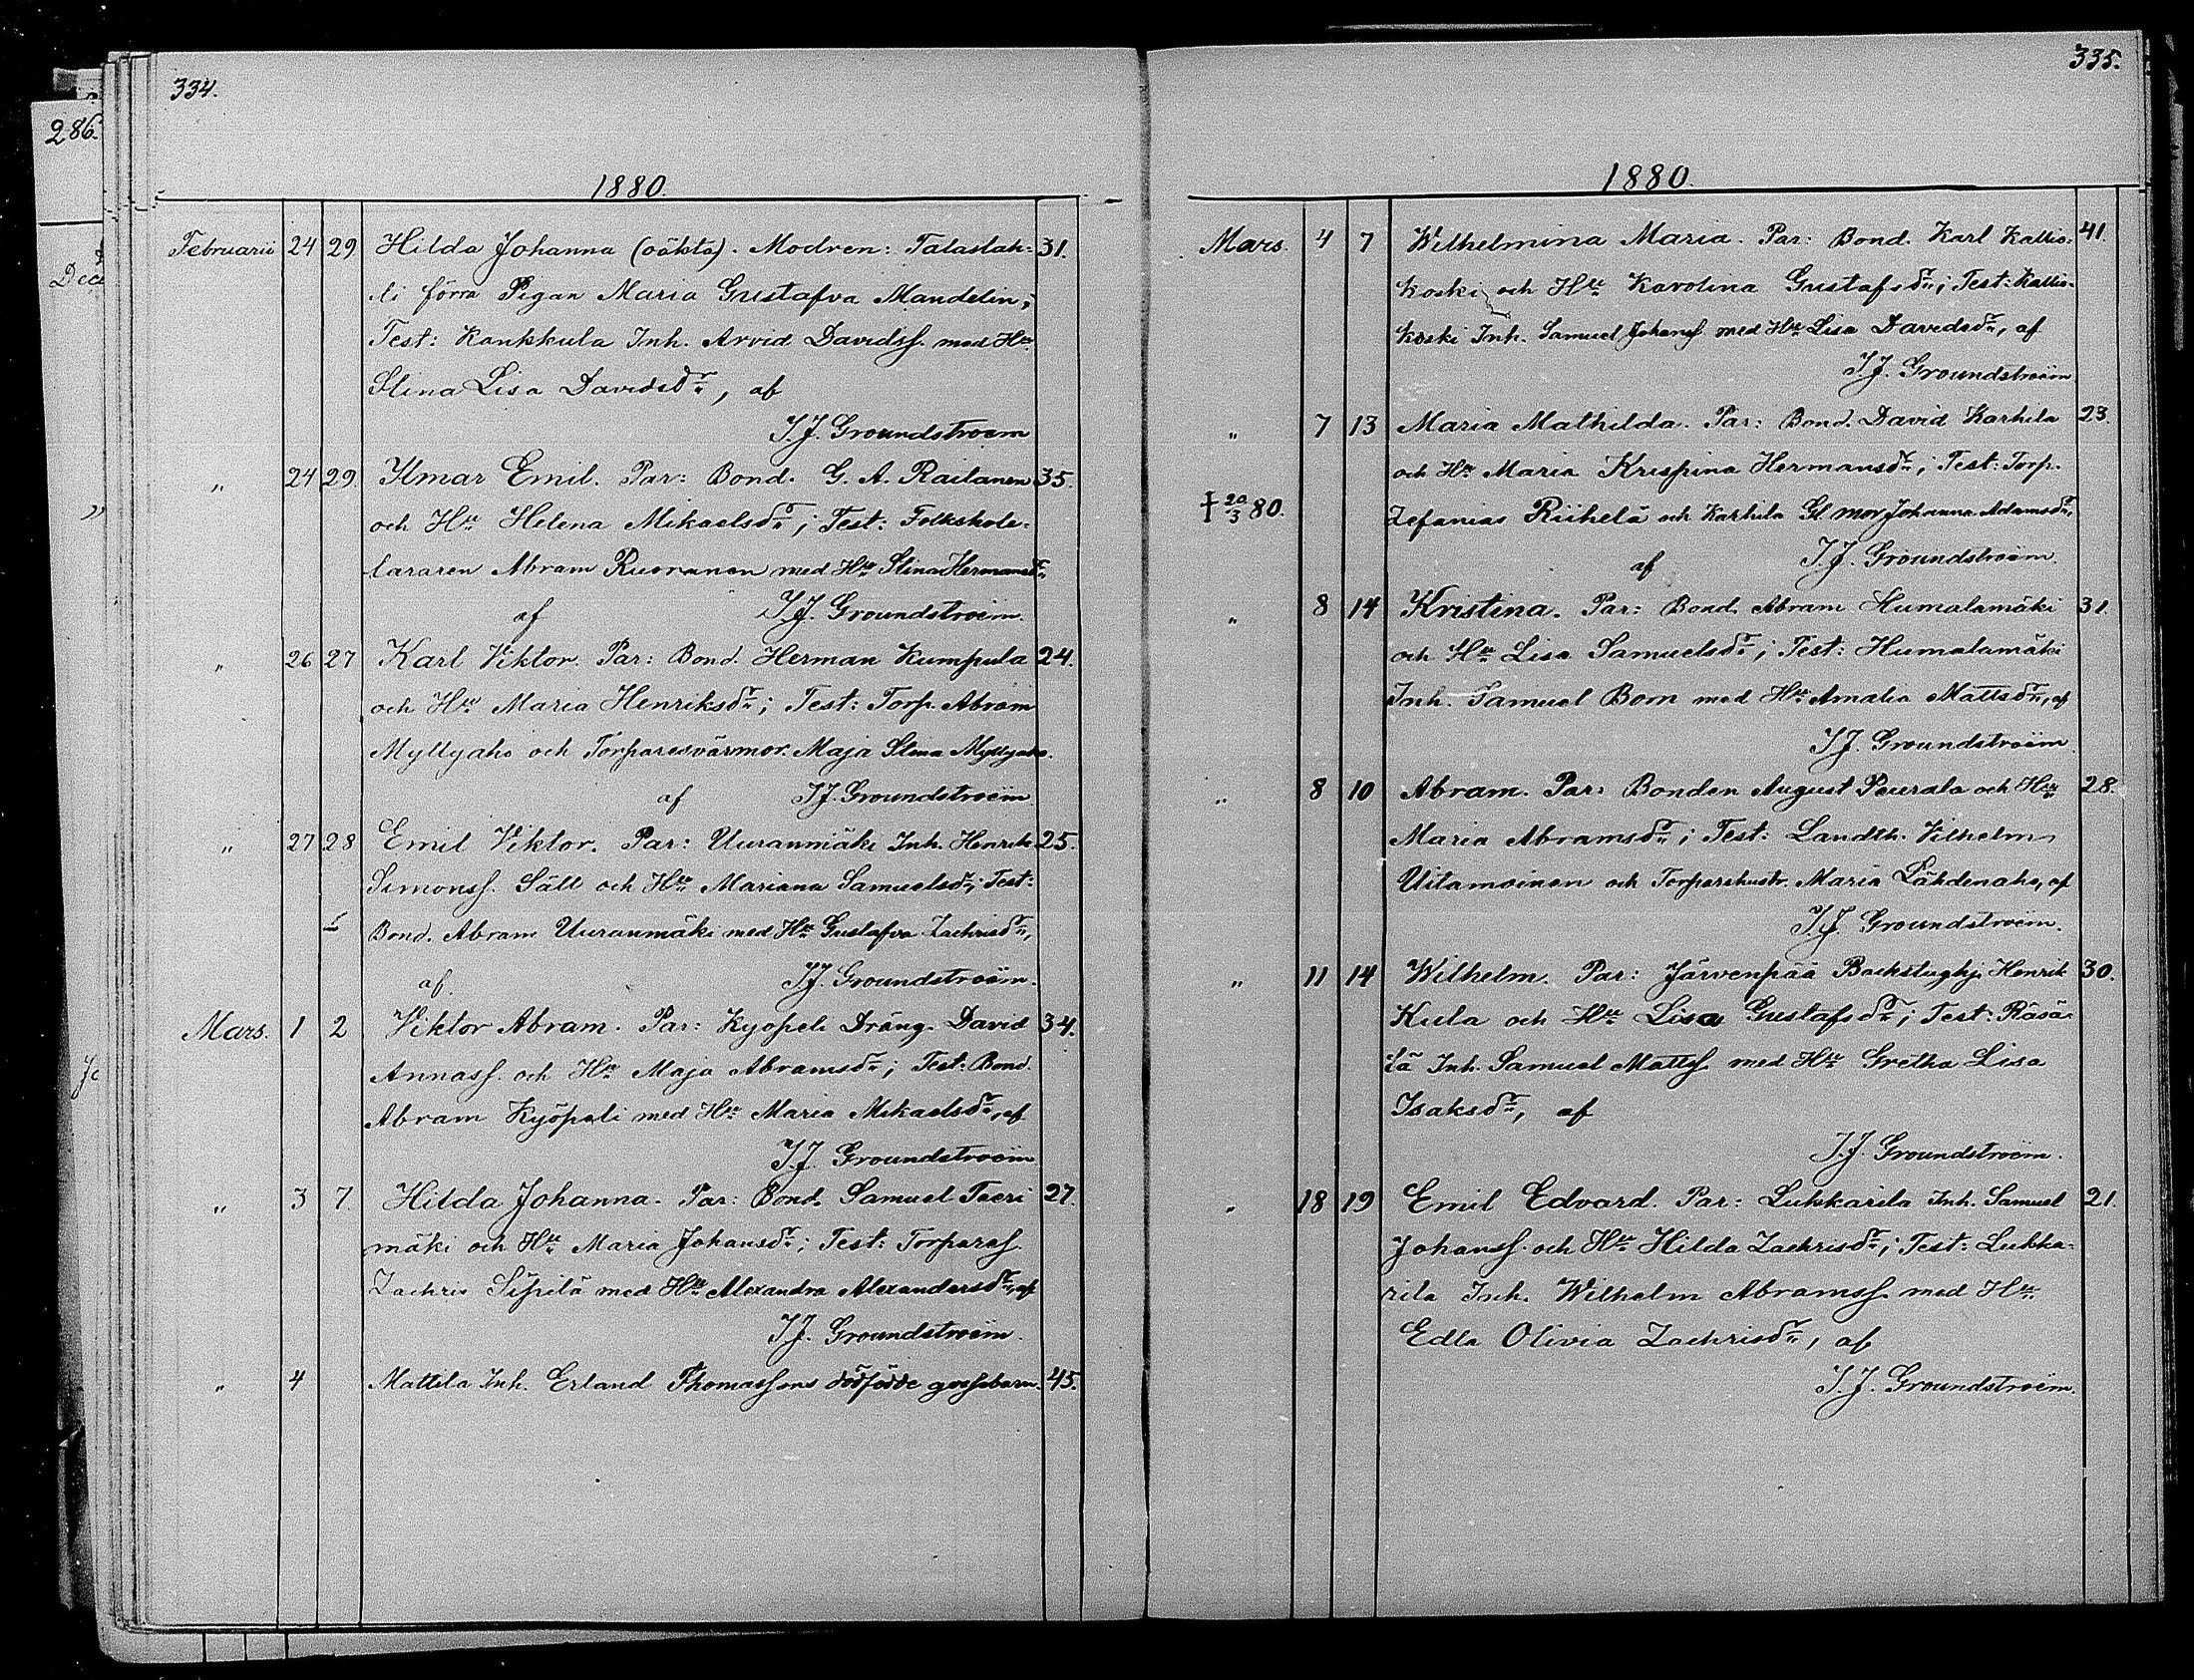 334.
286.
Dece
1880.
Februarii 24 29 Hilda Johanna (oäkta). Modren: Talaslah- 31.
ti förra Pigan Maria Gustafva Mandelin;
Test: Kankkula Inh. Arvid Davidss. med Hu
Stina Lisa Davidsdr, af
I.J. Groundstroem
" 24 29 Ilmar Emil. Par: Bond. G. A. Railanen 35.
och Hu Helena Mikaelsdr; Test: Folkskole-
läraren Abram Ruoranen med Hu Stina Hermansdr
af I.J. Groundstroem.
" 26 27 Karl Viktor. Par: Bond. Herman Kumpula 24.
och Hu Maria Henriksdr; Test: Torp. Abram
Myllyaho och Torparesvärmor. Maja Stina Myllyaho.
af I.J. Groundstroem
" 27 28 Emil Viktor. Par: Uuranmäki Inh. Henrik 25.
Simonss. Säll och Hu Mariana Samuelsdr; Test:
Bond. Abram Uuranmäki med Hu Gustafva Zachrisdr,
af I.J. Groundstroem.
Mars. 1 2 Viktor Abram. Par: Kyöpeli Dräng. David 34.
Annass. och Hu Maja Abramsdr; Test: Bond.
Abram Kyöpeli med Hu Maria Mikaelsdr, af
I.J. Groundstroem
" 3 7. Hilda Johanna. Par: Bond. Samuel Teeri 27.
mäki och Hu Maria Johansdr; Test: Torpares.
Zachris Sipilä med Hu Alexandra Alexandersdr, af
I.J. Groundstroem.
" 4 Mattila Inh. Erland Thomassons dödfödde gossebarn. 45.
335.
1880.
Mars. 4 7 Wilhelmina Maria. Par: Bond. Karl Kallio- 41.
koski och Hu Karolina Gustafsdr; Test: Kallio-
koski Inh. Samuel Johanss. med Hu Lisa Davidsdr, af
I.J. Groundstroem
" 7 13 Maria Mathilda. Par: Bond. David Karhila 23.
och Hu Maria Krispina Hermansdr; Test: Torp.
† 20/3 80. Zefanias Riihelä och Karhila Gl. mor Johanna Adamsdr,
af I.J. Groundstroem.
" 8 14 Kristina. Par: Bond. Abram Humalamäki 31.
och Hu Lisa Samuelsdr; Test: Humalamäki
Inh. Samuel Bom med Hu Amalia Mattsdr, af
I.J. Groundstroem
" 8 10 Abram. Par: Bonden August Peurala och Hu 28.
Maria Abramsdr; Test: Landth. Vilhelm
Uitamoinen och Torparehustr. Maria Lähdenaho, af
I.J. Groundstroem.
" 11 14 Wilhelm. Par: Järvenpää Backstughj. Henrik 30.
Kula och Hu Lisa Gustafsdr; Test: Räsä-
lä Inh. Samuel Mattss. med Hu Gretha Lisa
Isaksdr, af
I.J. Groundstroem.
" 18 19 Emil Edvard. Par: Lukkarila Inh. Samuel 21.
Johanss. och Hu Hilda Zachrisdr; Test: Lukka-
rila Inh. Wilhelm Abramss. med Hu
Edla Olivia Zachrisdr, af
I.J. Groundstroem.